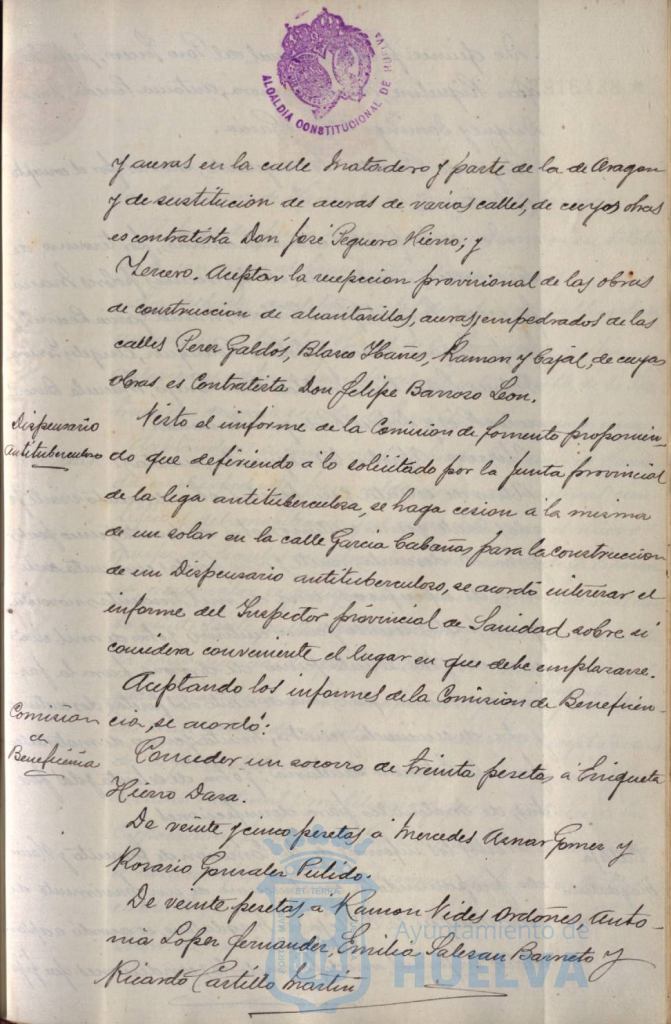 ALCALDIA CONSTITUCIONAL DE HUELVA
y aceras en la calle Matadero y parte de la de Aragon
y de sustitucion de aceras de varias calles, de cuyas obras
es contratista Don José Peguero Hierro; y
Tercero. Aceptar la recepcion provisional de las obras
de construccion de alcantarillas, aceras, empedrados de las
calles Perez Galdós, Blasco Ibañes, Ramon y Cajal, de cuyas
obras es Contratista Don Felipe Barroso Leon.
Dispensario
antituberculoso
Visto el informe de la Comision de fomento proponien-
do que defiriendo á lo solicitado por la Junta provincial
de la liga antituberculosa, se haga cesion á la misma
de un solar en la calle Garcia Cabañas para la construccion
de un Dispensario antituberculoso, se acordó interesar el
informe del Inspector provincial de Sanidad sobre si
considera conveniente el lugar en que debe emplazarse.
Comision
de
Beneficencia
Aceptando los informes de la Comision de Beneficen-
cia, se acordó:
Conceder un socorro de treinta pesetas á Enriqueta
Hierro Daza.
De veinte y cinco pesetas á Mercedes Aznar Gomez y
Rosario Gonzalez Pulido.
De veinte pesetas, á Ramon Vides Ordoñes, Anto-
nia Lopez Fernandez, Emilia Barneto y
Ricardo Castillo Martin
Ayuntamiento de
HUELVA